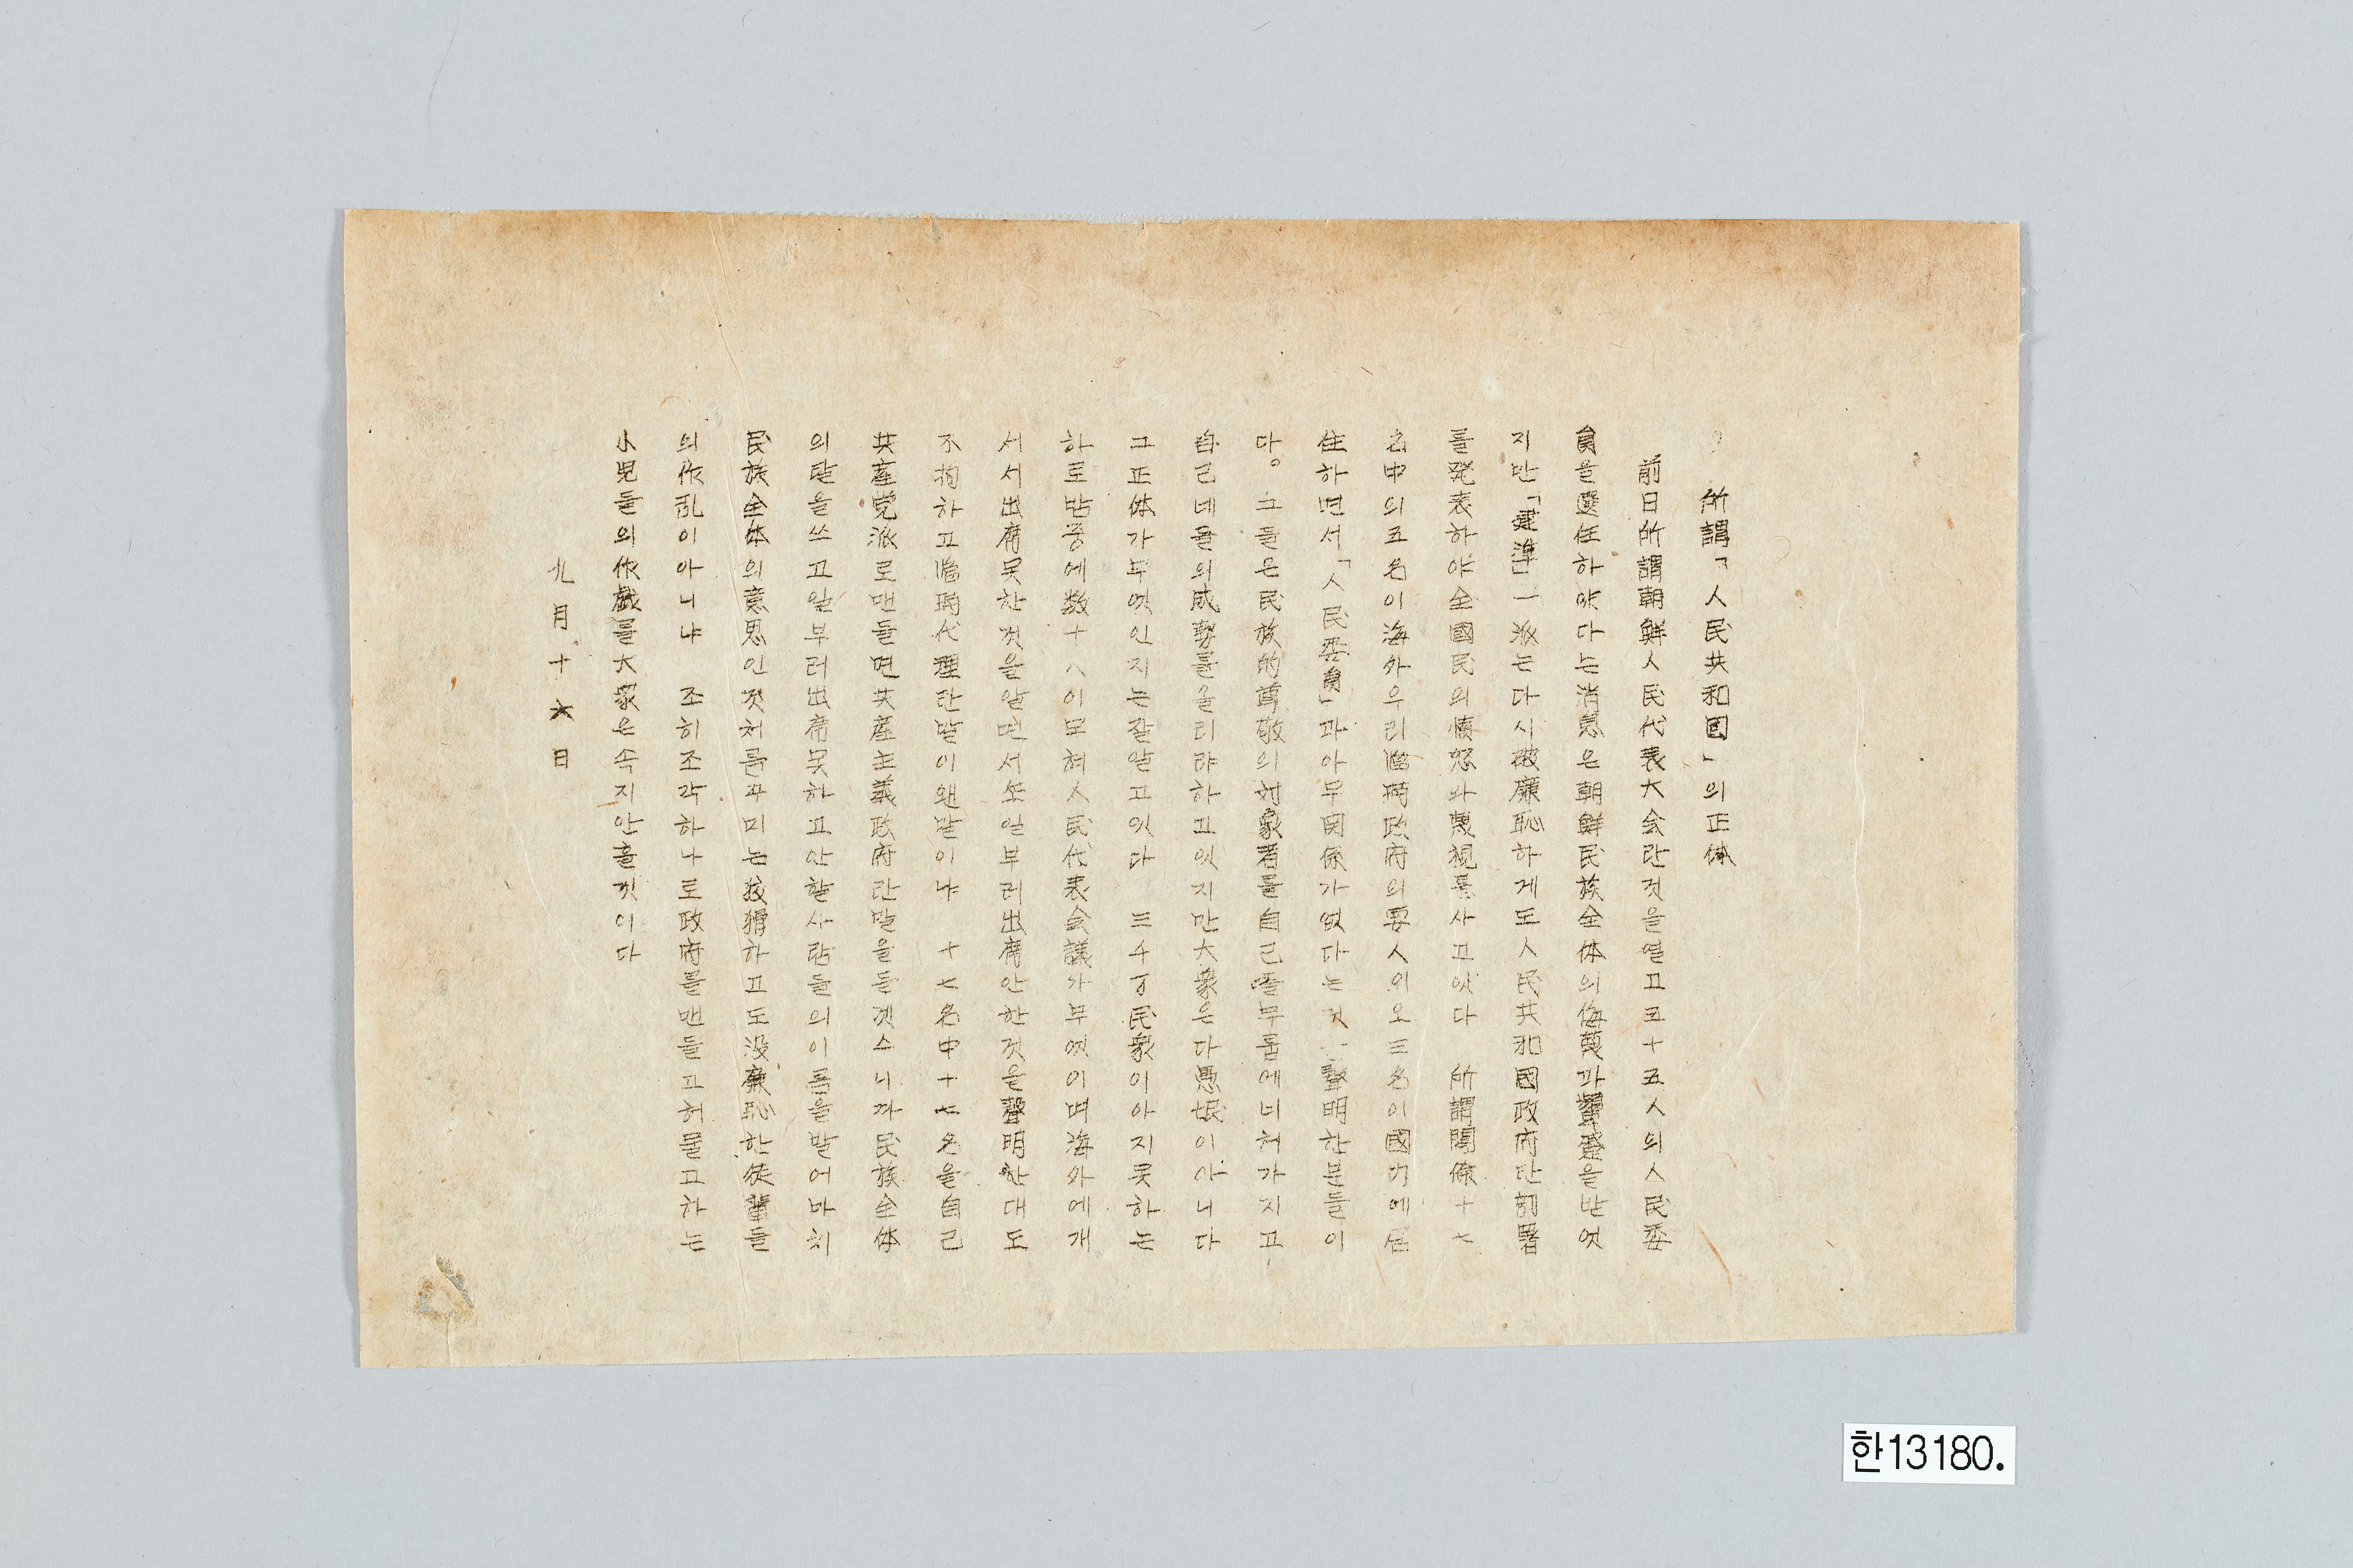 所謂「人民共和国」의正体
前日所謂朝鮮人民代表大会란것을열고五十五人의人民委
員을選任하얏다는消息은朝鮮民族全体의侮蔑과嚬蹙을받엇
지만「建準」一派는다시破廉恥하게도人民共和國政府란部署
를発表하야全國民의憤怒와蔑視를사고잇다 所謂閣僚十七
名中의五名이海外우리臨時政府의要人외오三名이國内에居
住하면서「人民委員」과아무関係가업다는것 聲明한분들이
다。그들은民族的尊敬의対象者를自己들무릅에너허가지고
自己네들의成勢를올리랴하고잇지만大衆은다愚氓이아니다
그正体가무엇인지는잘알고잇다 三千万民衆이아지못하는
하로밤중에数十人이모혀人民代表会議가무엇이며海外에게
서서出席못한것을알면서또일부러出席안한것을聲明한대도
不拘하고臨時代理란말이왠말이냐 十七名中十七名을自己
共産党派로맨들면共産主義政府란말을들겟스니까民族全体
의탈을쓰고일부러出席못하고안할사람들의이름을말어마치
民族全体의意思인것처름꾸미는狡猾하고도没廉恥한徒輩들
의作乱이아니냐 조히조각하나로政府를맨들고허물고하는
小児들의作戯를大衆은속지안흘것이다
九月十六日
한13180.